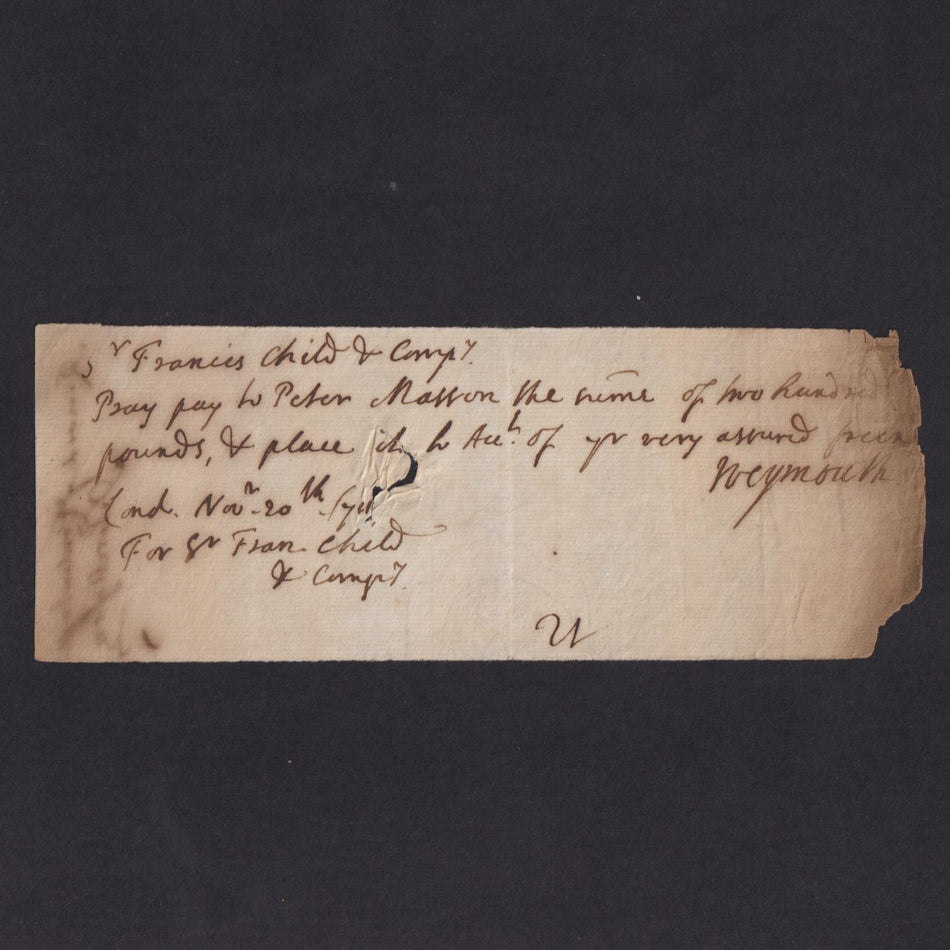 Sr Francis Child & Compy.
Pray pay to Peter Masson the sume of two hundred
pounds, & place it to Acct. of yr very assured frein
Weymouth
Lond. Novr. 20th.
For Sr Fran. Child
& Compy.